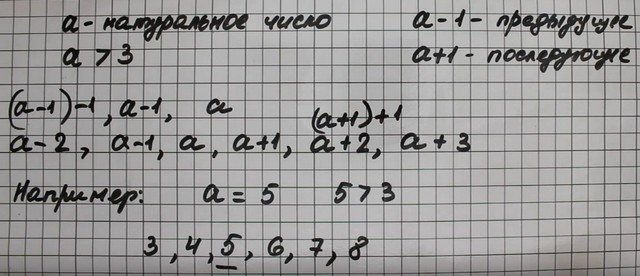 a - натуральное число a-1 - предыдущее
a > 3 a+1 - последующее
(a-1)-1, a-1, a (a+1)+1
a-2, a-1, a, a+1, a+2, a+3
Например: a = 5 5 > 3
3, 4, 5, 6, 7, 8